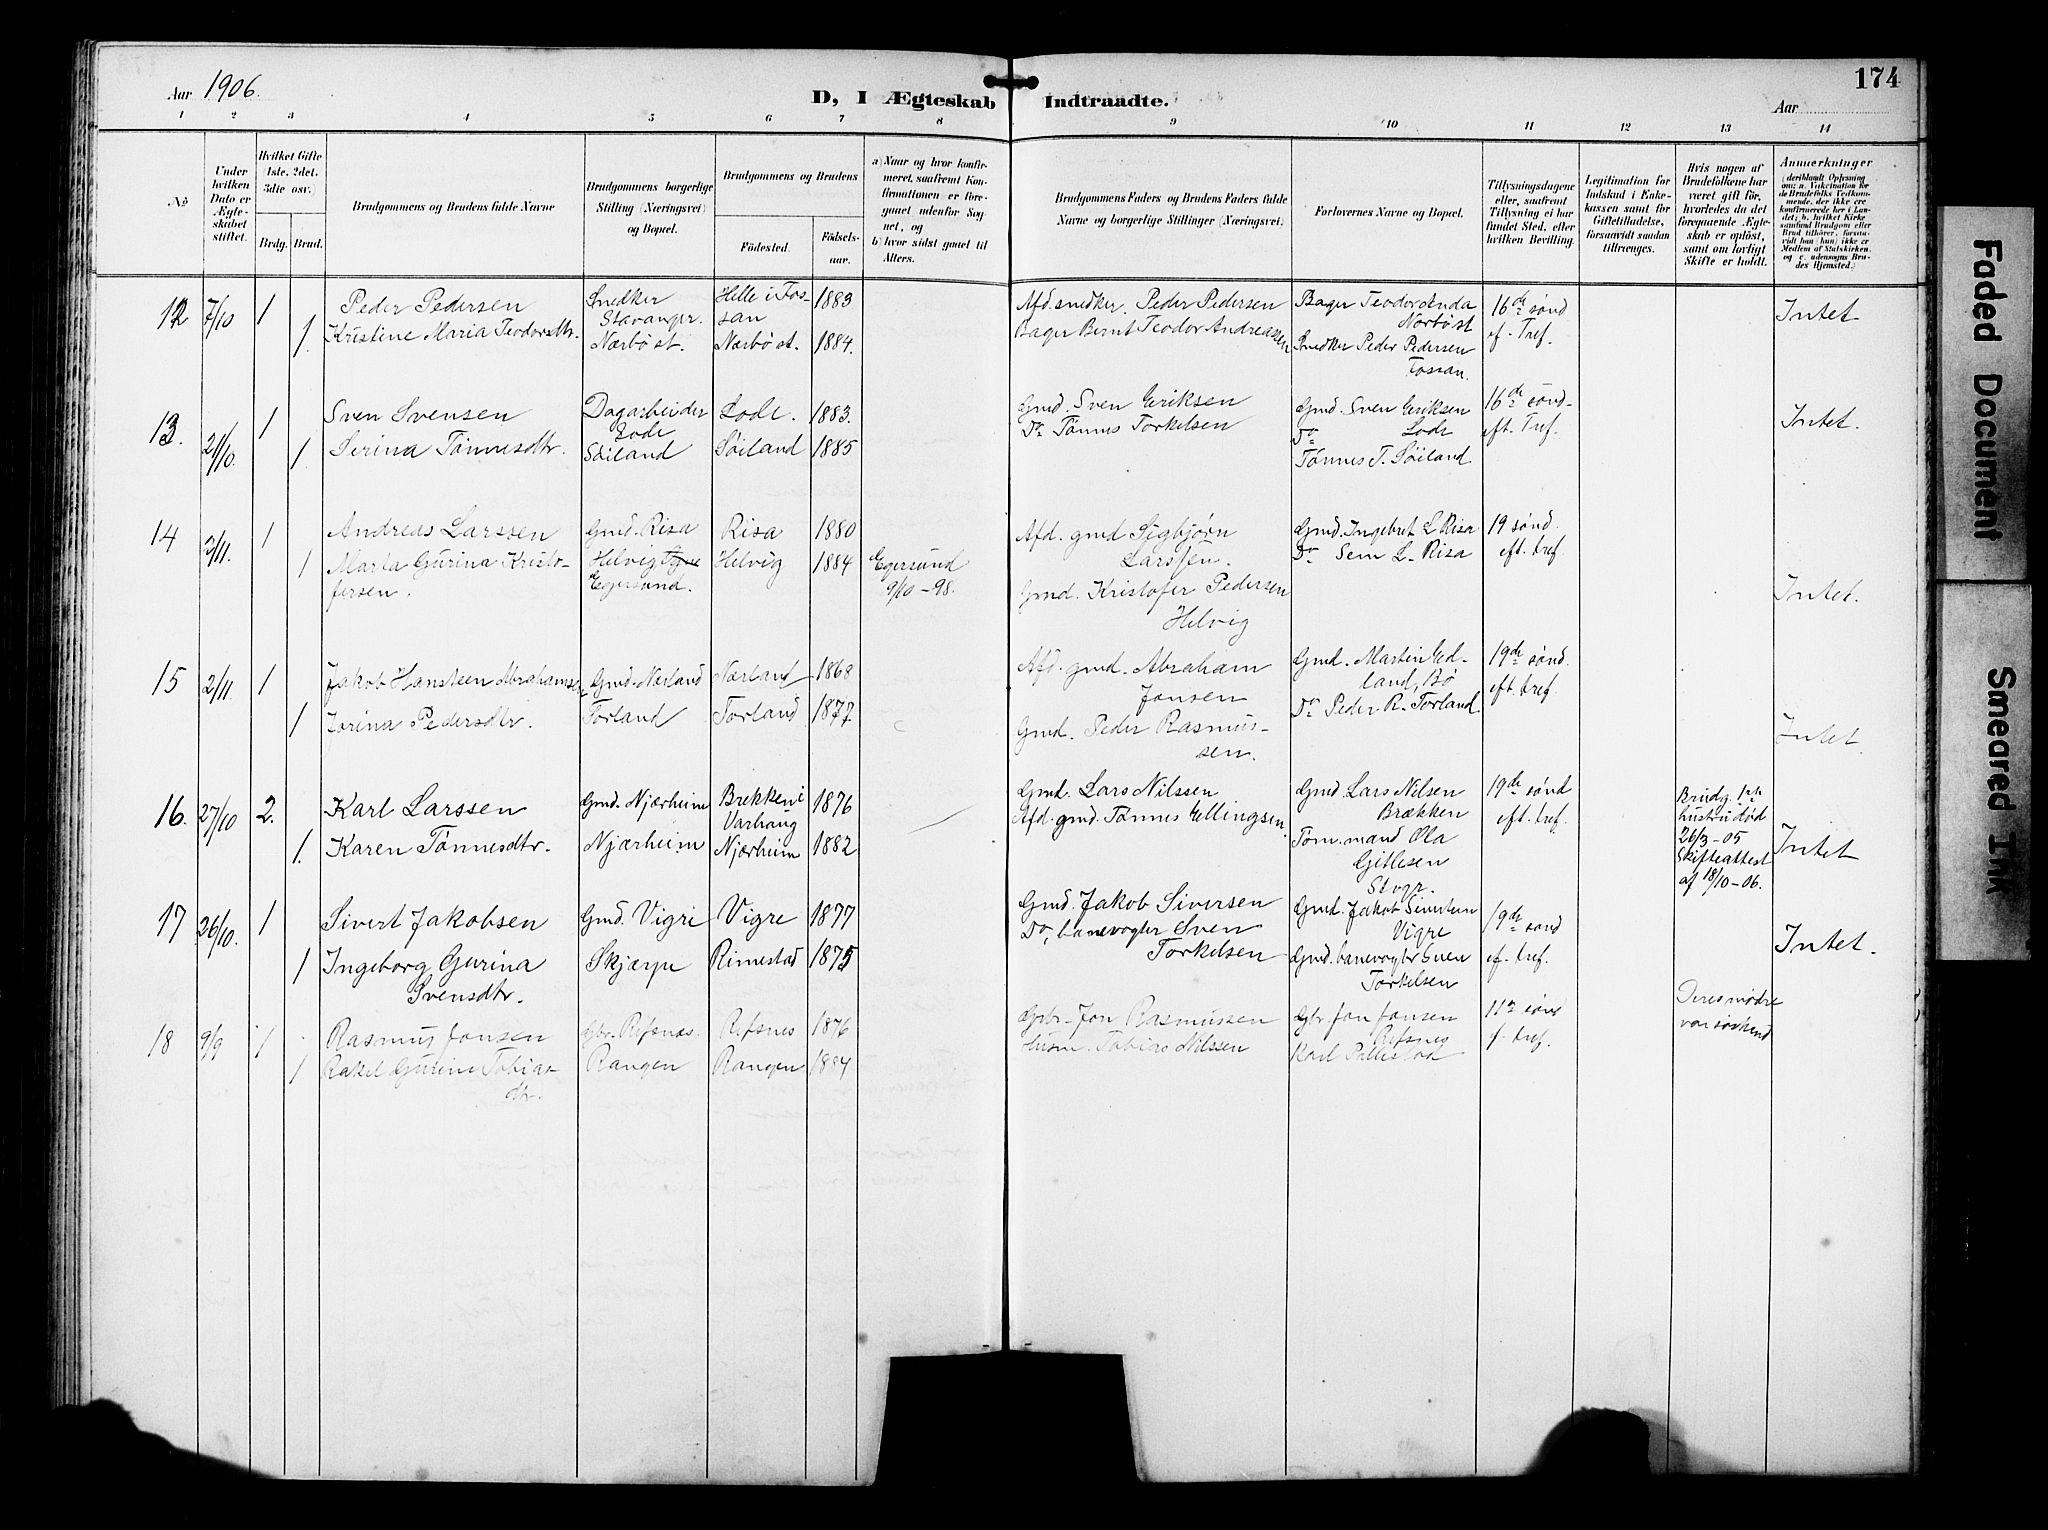 174
Aar 1906.
D, I Ægteskab Indtraadte.
Aar
1 2 3 4 5 6 7 8 9 10 11 12 13 14
No
Under hvilken Dato er Ægteskabet stiftet.
Hvilket Gifte 1ste. 2det. 3die osv.
Brdg. Brud.
Brudgommens og Brudens fulde Navne
Brudgommens borgerlige Stilling (Næringsvei) og Bopæl.
Brudgommens og Brudens
Fødested. Fødselsaar.
a) Naar og hvor konfirmeret, saafremt Konfirmationen er foregaaet udenfor Sognet, og
b) hvor sidst gaaet til Alters.
Brudgommens Faders og Brudens Faders fulde Navne og borgerlige Stillinger (Næringsvei).
Forlovernes Navne og Bopæl.
Tillysningsdagene eller, saafremt Tillysning ei har fundet Sted, efter hvilken Bevilling.
Legitimation for Indskud i Enkekassen samt for Giftetilladelse, forsaavidt saadan tiltrænges.
Hvis nogen af Brudefolkene har været gift før, hvorledes da det foregaaende Ægteskab er opløst, samt om lovligt Skifte er holdt.
Anmerkninger
(deriblandt Oplysning om: a. Vakcination for de Brudefolks Vedkommende, der ikke ere konfirmerede her i Landet; b. hvilket Kirkesamfund Brudgom eller Brud tilhører, forsaavidt han (hun) ikke er Medlem af Statskirken, og c. udensogns Brudes Hjemsted.)
12 7/10 1 Peder Pedersen Snedker Stavanger. Helle i Fossan 1883 Afd. snedker. Peder Pedersen Bager Teodor Enda Nærbø st 16de sønd ef. Tref. Intet.
1. Kristine Maria Teodorsdtr. Nærbø st. Nærbø st. 1884. Bager Bernt Teodor Andreassen Snedker Peder Pedersen Fossan.
13. 21/10. 1 Sven Svensen Dagarbeider Lode Lode. 1883. Gmd. Sven Eriksen Gmd. Sven Eriksen Lode 16de sønd. eft. Tref. Intet.
1. Serina Tønnesdtr. Søiland Søiland 1885 Do Tønnes Torkelsen Do Tønnes T. Søiland
14 2/11. 1 Andreas Larssen Gmd. Risa Risa 1880 Afd. gmd Sigbjørn Larssen. Gmd. Ingebret L Risa 19 sønd. eft. tref.
1 Marta Gurina Kristofersen. Helvig Egersund. Helvig 1884 Egersund 9/10-98. Gmd. Kristofer Pedersen Helvig Do Sem L. Risa Intet.
15 2/11. 1 Jakob Hansteen Abrahamsen Gmd. Nærland Nærland 1868 Afd. gmd. Abraham Jonsen Gmd. Martin Edland, Bø 19de sønd. eft. tref.
1 Jorina Pedersdtr. Torland Torland 1877 Gmd. Peder Rasmussen. Do Peder R. Torland. Intet.
16. 27/10 2. Karl Larssen Gmd. Njærheim Brekken i Varhaug 1876 Gmd. Lars Nilssen Gmd. Lars Nilsen Brækken 19de sønd eft. tref. Brudg. 1ste hustru død 26/3-05 Skifteattest af 18/10-06.
1. Karen Tønnesdtr. Njærheim Njærheim 1882 Afd. gmd. Tønnes Ellingsen Tøm. mand Ola Gitlesen Stvgr. Intet
17 26/10. 1 Sivert Jakobsen Gmd. Vigre Vigre 1877 Gmd. Jakob Siversen Gmd. Jakob Siversen Vigre 19de sønd ef. tref. Intet.
1 Ingeborg Gurina Svensdtr. Skjærpe Rimestad 1875 Do, banevogter Sven Torkelsen Gmd. banevogter Sven Torkelsen
18 9/9 1 Rasmus Jonsen Gbr. Refsnæs. Refsnes 1876 Gbr. Jon Rasmussen Gbr Jon Jonsen Refsnes 11te sønd f. tref. Deres mødre var søskend
1 Rakel Gurine Tobiasdtr. Rangen Rangen 1884 Husm. Tobias Nilssen Karl Pallestad
Faded Document
Smeared Ink